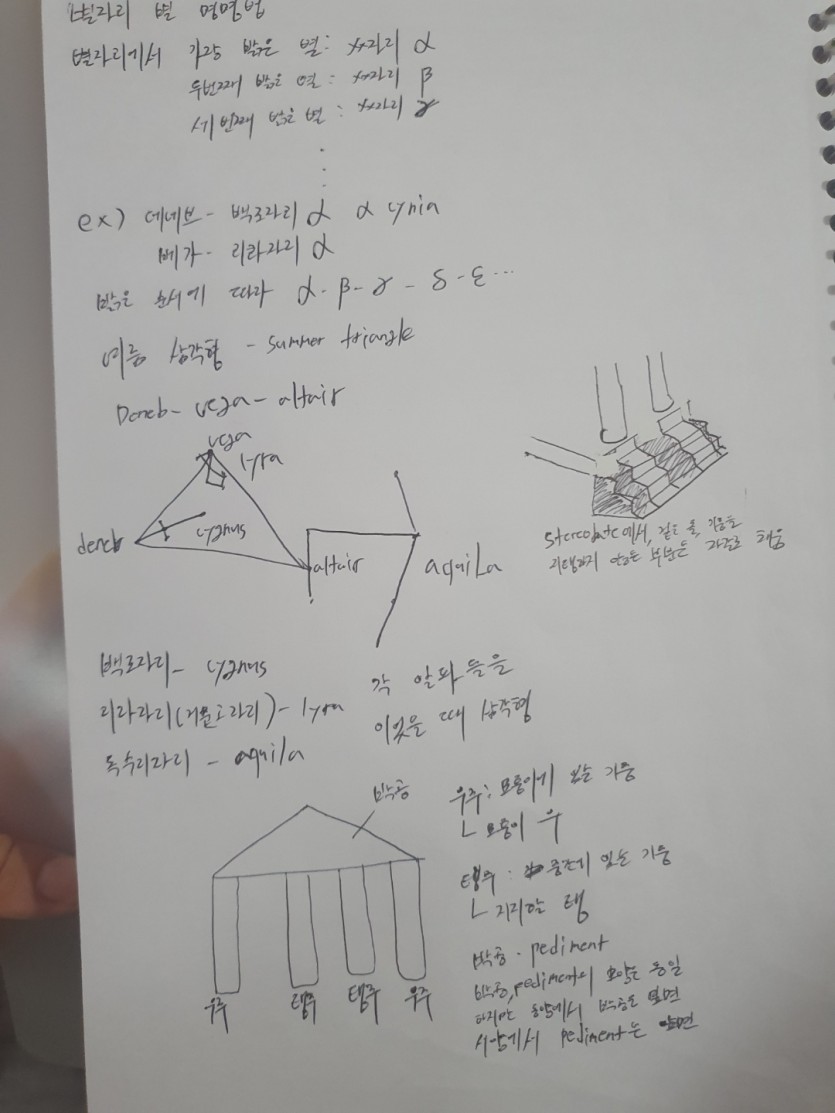 별자리 별 명명법
별자리에서 가장 밝은 별: xx자리 α
두번째 밝은 별 : xx자리 β
세번째 밝은 별 : xx자리 γ
ex) 데네브 - 백조자리 α α cynia
베가 - 리라자리 α
밝은 순서에 따라 α - β - γ - δ - ε ...
여름 삼각형 - summer triangle
Deneb - vega - altair
vega
lyra
deneb
cygnus
altair
aquila
stereobate에서,
지탱하지 않는 부분은 자갈로 채움
백조자리 - cygnus
리라자리(거문고자리) - lyra
독수리자리 - aquila
각 알파들을
이었을 때 삼각형
박공
우주 탱주 탱주 우주
우주: 모퉁이에 있는 기둥
ㄴ 모퉁이 우
탱주 : 중간에 있는 기둥
ㄴ 지지할 탱
박공 - pediment
박공, pediment의 모양은 동일
하지만 동양에서 박공은 옆면
서양에서 pediment는